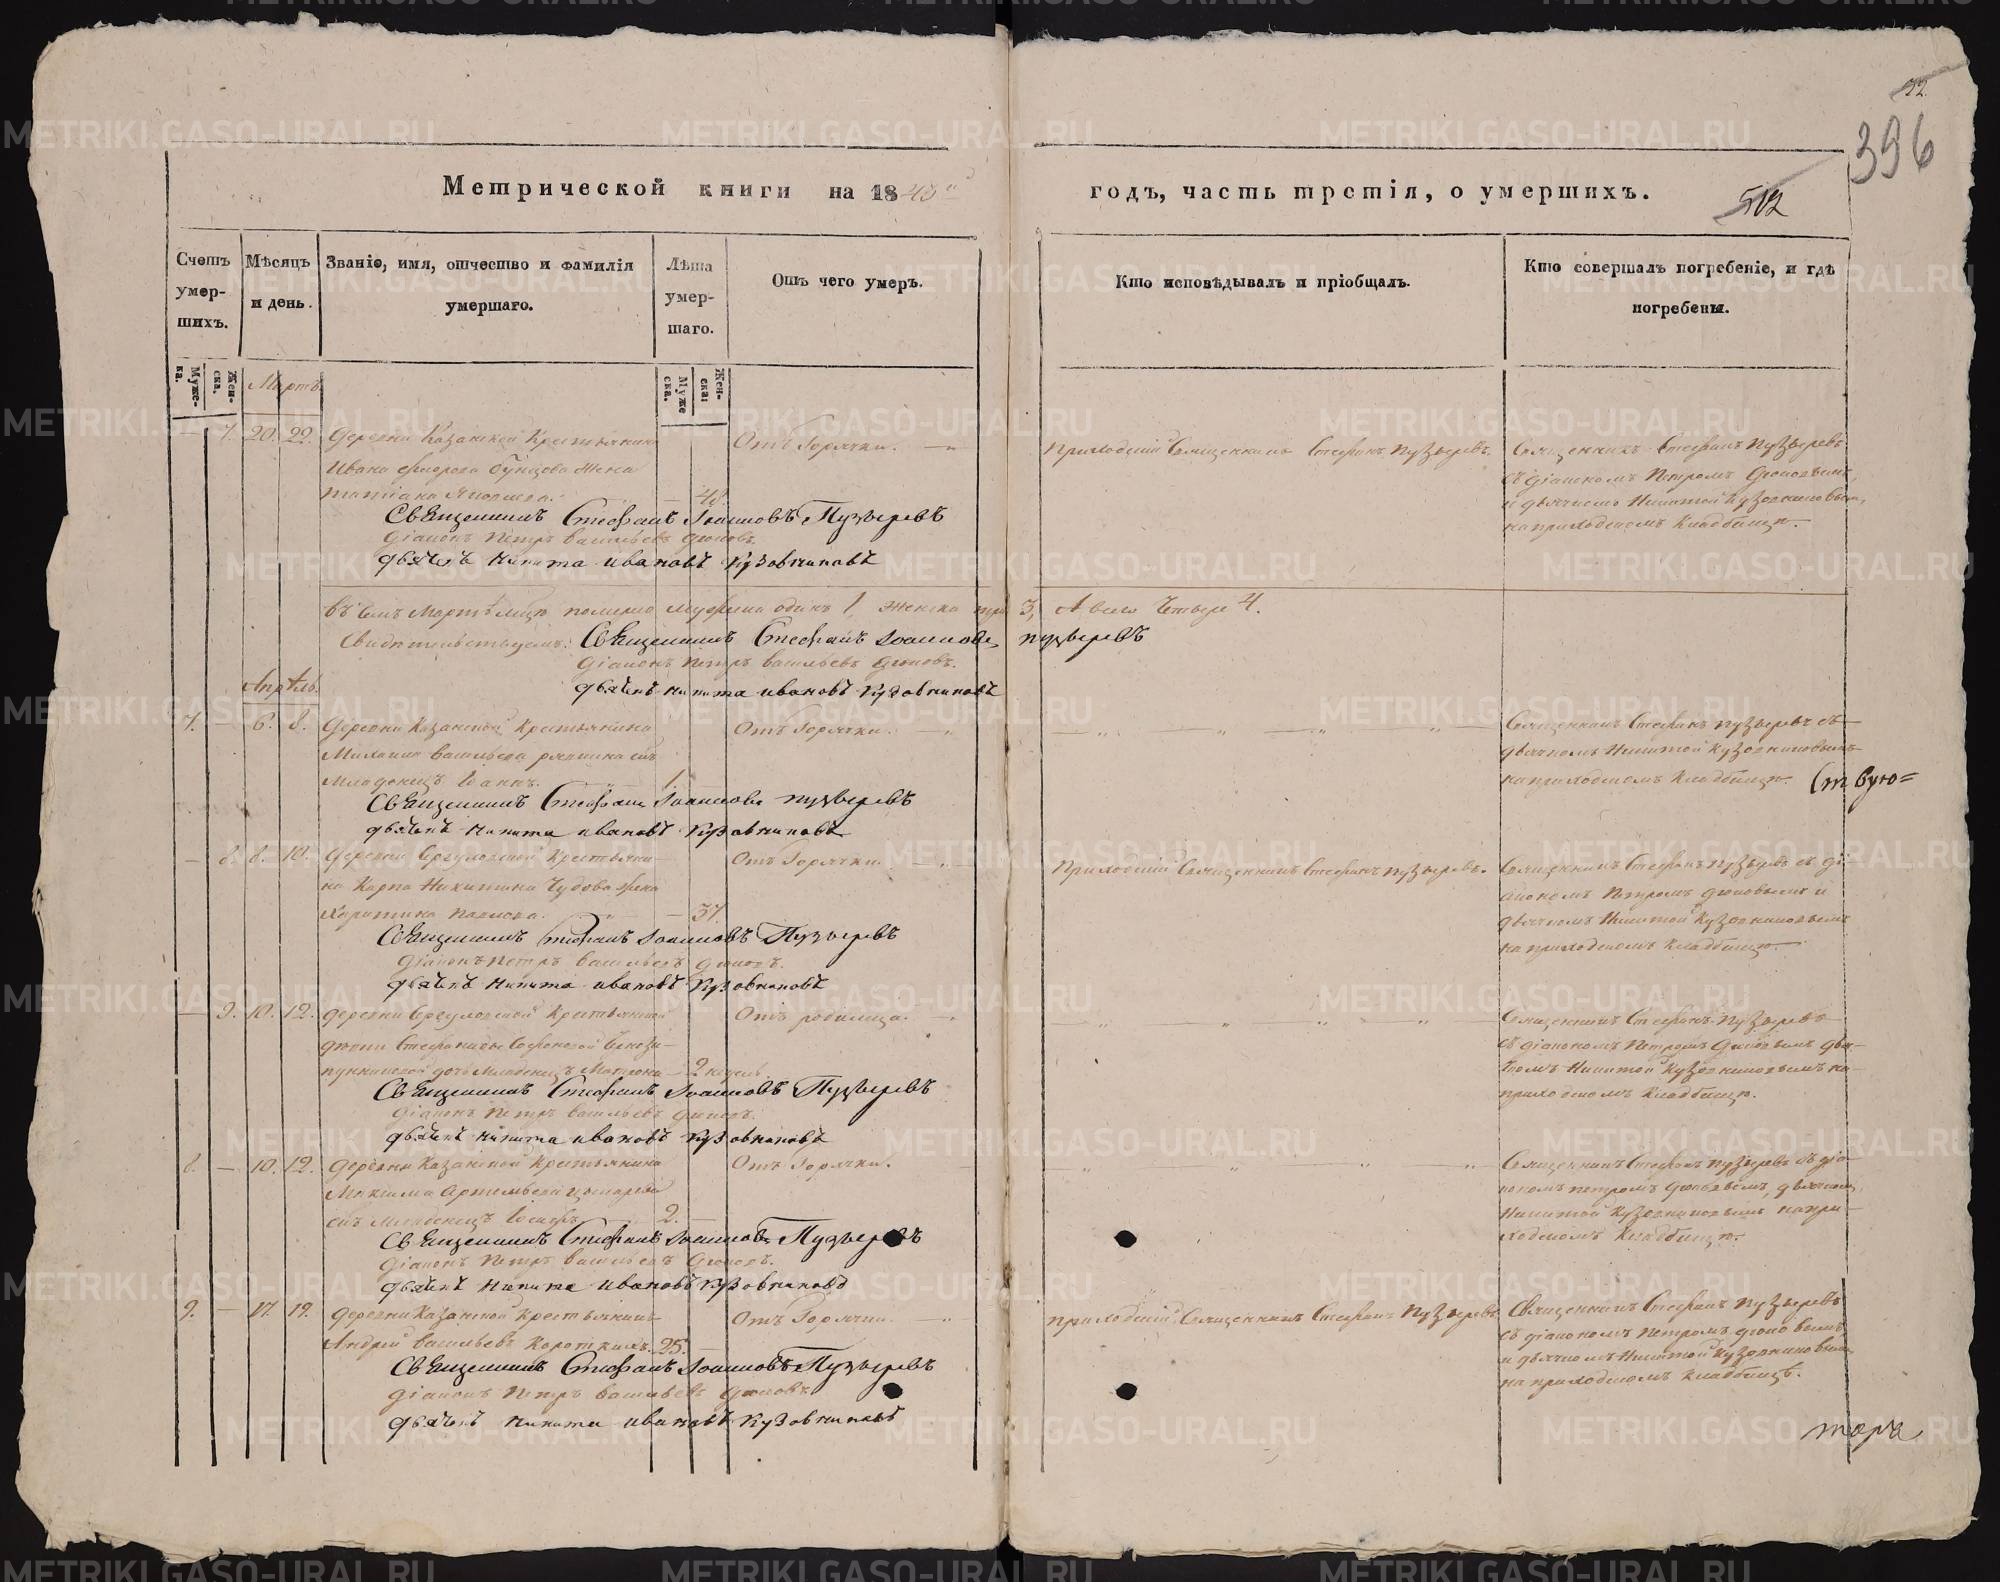 12.
396
Метрической книги на 1843й
годъ, часть третія, о умершихъ.
512
Счетъ умер-шихъ.
Мѣсяцъ и день.
Званіе, имя, отчество и фамилія умершаго.
Лѣта умер-шаго.
Отъ чего умеръ.
Кто исповѣдывалъ и пріобщалъ.
Кто совершалъ погребеніе, и гдѣ погребены.
Муже-ка.
Жен-ска.
Мартъ
Муже ска.
Жен-ска:
7. 20. 22. Деревни Казанской Крестьянина
Отъ Горячки.
Приходский Священникъ Стефанъ Пузыревъ.
Священникъ Стефанъ Пузыревъ
Ивана Бунцова жена
съ діакономъ Петромъ
48.
и дьячкомъ Никитой Кузовниковым,
Священникъ Стефанъ Іоанновъ Пузыревъ
на приходскомъ Кладбищѣ.
Діаконъ Петръ Васильевъ
дьячекъ Никита Ивановъ Кузовниковъ
въ Мартѣ мцѣ мужеска одинъ 1, женска три 3, А всего Четыре 4.
Свидѣтельствуемъ: Священникъ Стефанъ Іоанновъ Пузыревъ
Діаконъ Петръ Васильевъ
Апрѣль.
дьячекъ Никита Ивановъ Кузовниковъ
7. 6. 8. Деревни Казанской Крестьянина
Отъ Горячки.
Священникъ Стефанъ Пузыревъ съ
Михаила Васильева сынъ
дьячкомъ Никитой Кузовниковымъ
Младенецъ Іоаннъ. 1.
на приходскомъ Кладбищѣ. (твую=
Священникъ Стефанъ Іоанновъ Пузыревъ
дьячекъ Никита Ивановъ Кузовниковъ
8. 8. 10. Деревни Крестьяни-
Отъ Горячки.
Приходский Священникъ Стефанъ Пузыревъ.
Священникъ Стефанъ Пузыревъ съ ді-
на Карпа Никитина Чудова жена
акономъ Петромъ и
Харитина Павлова. 37.
дьячкомъ Никитой Кузовниковымъ
Священникъ Стефанъ Іоанновъ Пузыревъ
на приходскомъ Кладбищѣ.
Діаконъ Петръ Васильевъ
дьячекъ Никита Ивановъ Кузовниковъ
9. 10. 12. Деревни Крестьянской
Отъ родимца.
Священникъ Стефанъ Пузыревъ
съ діакономъ Петромъ дья-
дочь Младенецъ Матрона 2 недель.
чкомъ Никитой Кузовниковымъ на
Священникъ Стефанъ Іоанновъ Пузыревъ
приходскомъ Кладбищѣ.
Діаконъ Петръ Васильевъ
дьячекъ Никита Ивановъ Кузовниковъ
8. 10. 12. Деревни Казанской Крестьянина
Отъ Горячки.
Священникъ Стефанъ Пузыревъ съ діа-
Максима Артемьева
кономъ Петромъ дьячкомъ
сынъ Младенецъ Іосифъ 2.
Никитой Кузовниковымъ на при-
Священникъ Стефанъ Іоанновъ Пузыревъ
ходскомъ Кладбищѣ.
Діаконъ Петръ Васильевъ
дьячекъ Никита Ивановъ Кузовниковъ
9. 17. 19. Деревни Казанской Крестьянинъ
Отъ Горячки.
Приходский Священникъ Стефанъ Пузыревъ
Священникъ Стефанъ Пузыревъ
Андрей Васильевъ Короткихъ. 25.
съ діакономъ Петромъ
Священникъ Стефанъ Іоанновъ Пузыревъ
и дьячкомъ Никитой Кузовниковым
Діаконъ Петръ Васильевъ
на приходскомъ Кладбищѣ.
дьячекъ Никита Ивановъ Кузовниковъ
METRIKI.GASO-URAL.RU